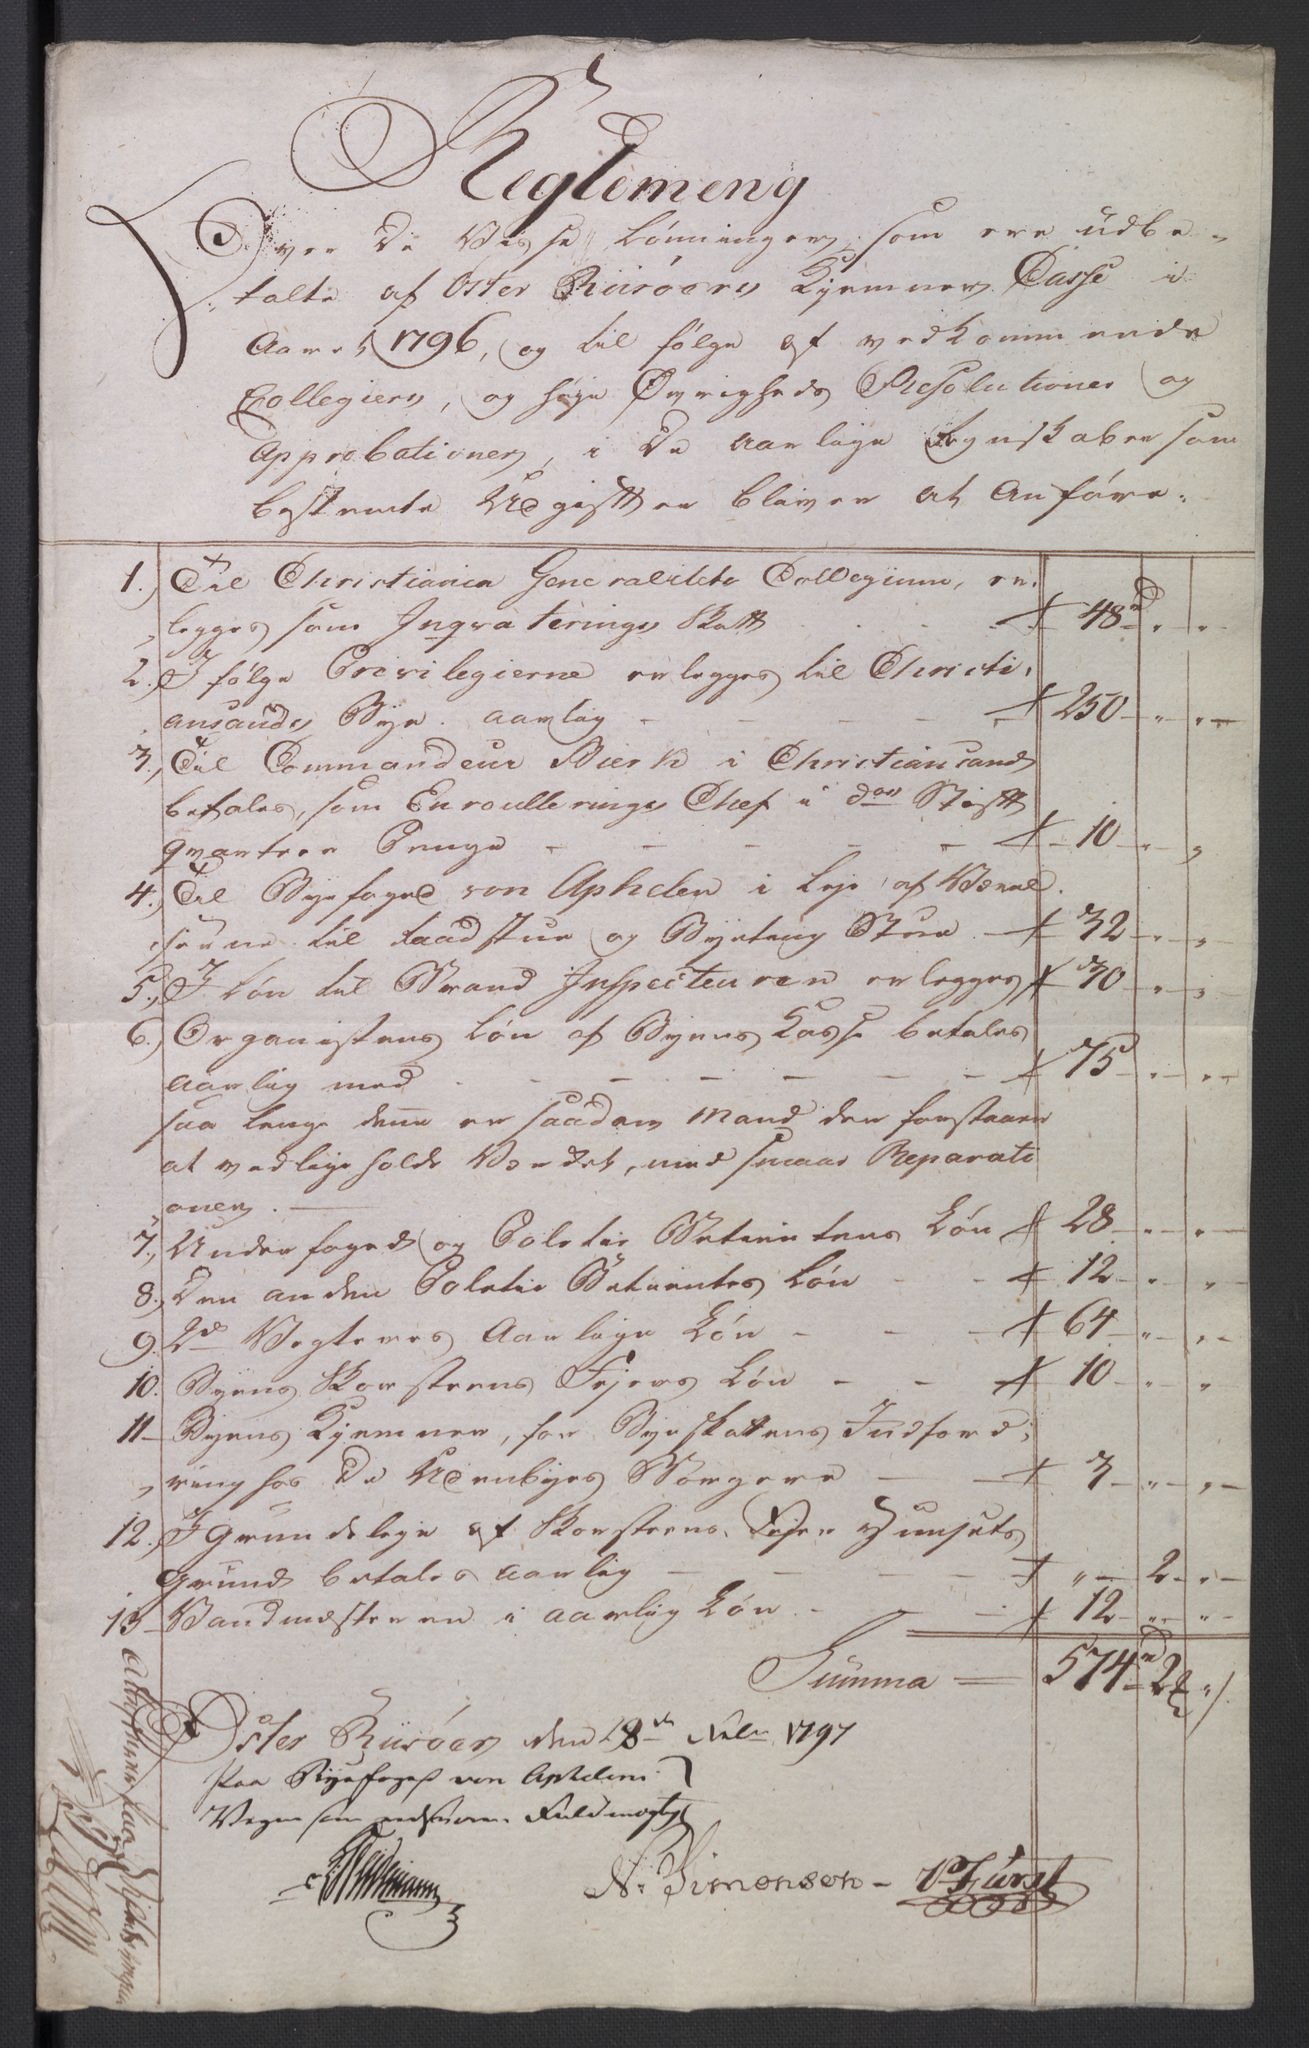 Reglement
Over de Visse Lønninger, som ere udbe-
talte af Øster Riisøers Kjemner Casse i
Aaret 1796, og til følge af vedkommende
Collegiers, og høye Øvrigheds Resolutioner og
Approbationer, i de aarlige Regnskaber som
bestemte Udgifter bliver at Anføre.
1. Til Christiania Generalitets Collegium, er-
legges som Inqvaterings Skatt - 48 rd " "
2. I følge Privilegierne erlegges til Christi-
ansands Bye aarlig - 250 " "
3. Til Commandeur Bierk i Christiansand
betales, som Enroullerings Chef i d° Stift
qvarteer Penge - 10 " "
4. Til Byefoged von Aphelen i Leje af Værel-
serne til Raadstue og Byeting Stue - 32 " "
5. I Løn til Brand Inspecteuren erlegges 30 " "
6. Organistens Løn af Byens Casse betales
aarlig med - 75 " "
saa lenge denne er saadan Mand der forstaaer
at vedligeholde Værket, med smaae Reparati
oner.
7. Underfoged og Politie Betientens Løn 28 " "
8. Den anden Politie Betientes Løn - 12 " "
9. 2de Vegteres Aarlige Løn - 64 " "
10. Byens Skorsteens Fejers Løn - 10 " "
11 Byens Kjemner, for Byeskattens Indford-
ring hos de Udenbyes Borgere - 3 " "
12. I Grundeleje af Skorsteens Fejer Huusets
Grund betales aarlig - " 2 "
13 Vandmesteren i aarlig Løn - 12 " "
Summa - 574 rd 2 "
Øster Riisøer den 28de Febr 1797
Paa Byefoged von Aphelens
Vegne som Fuldmegtig
N. Simonsen - P Fürst